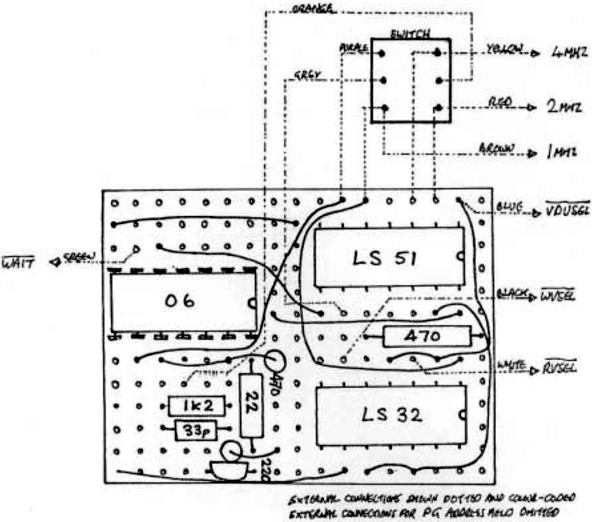 ORANGE
SWITCH
PURPLE
YELLOW
4MHZ
GREY
RED
2MHZ
BROWN
1MHZ
BLUE
VDUSEL
WAIT
GREEN
LS 51
06
BLACK
WVSEL
470
WHITE
RVSEL
470
1k2
22
LS 32
33p
220
EXTERNAL CONNECTIONS SHOWN DOTTED AND COLOR-CODED
EXTERNAL CONNECTIONS FOR PG ADDRESS HELD OMITTED